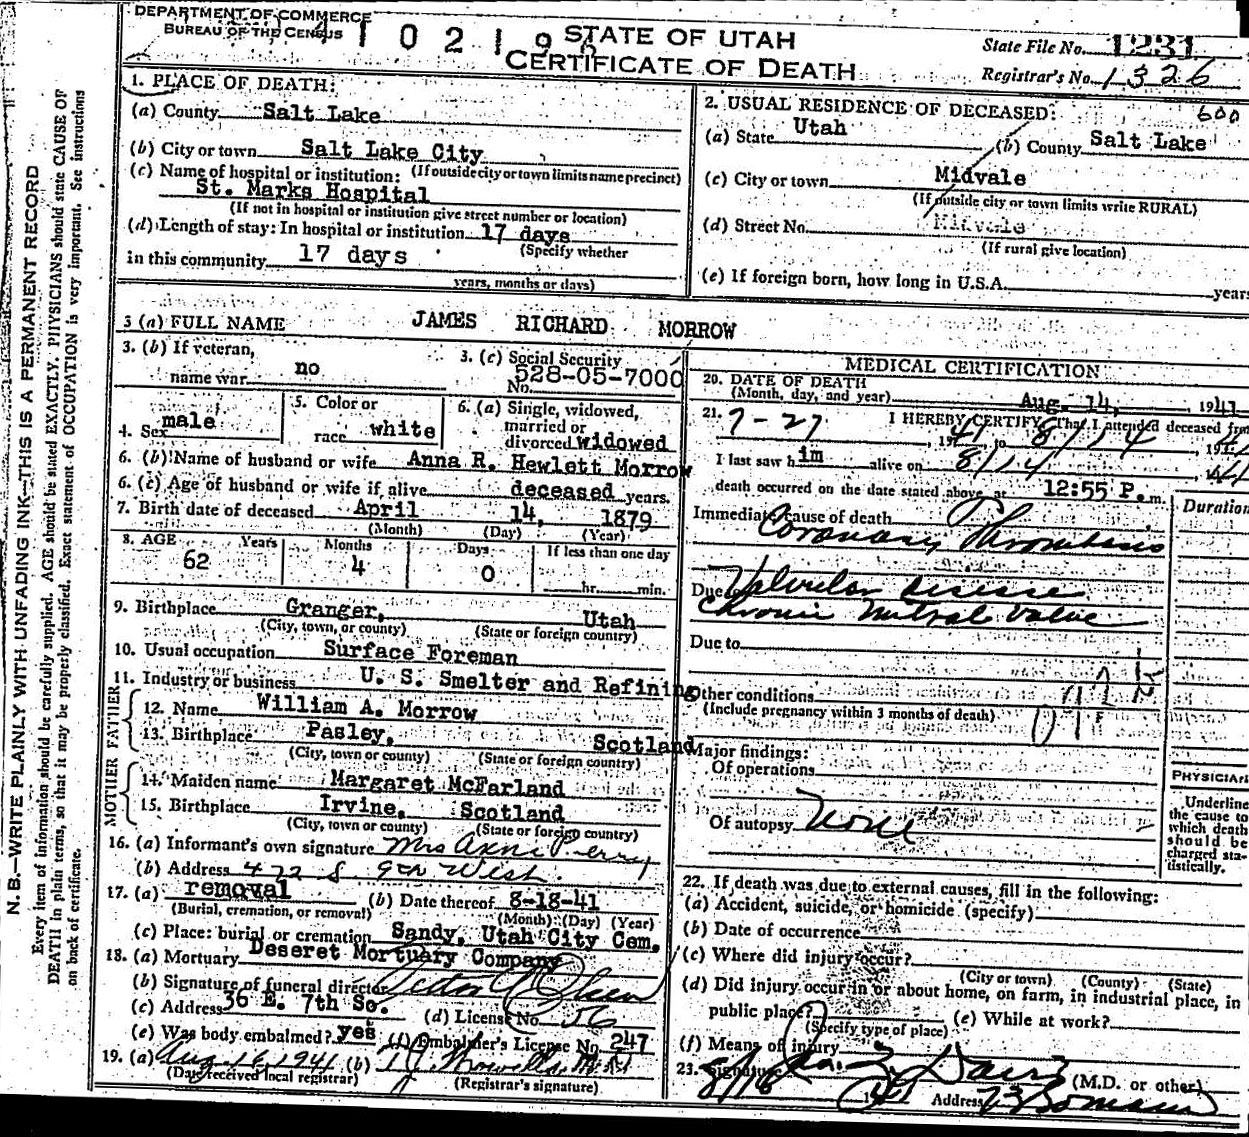 DEPARTMENT OF COMMERCE
BUREAU OF THE CENSUS
STATE OF UTAH
CERTIFICATE OF DEATH
State File No. 1231
Registrar's No. 1326
N. B.—WRITE PLAINLY WITH UNFADING INK—THIS IS A PERMANENT RECORD
Every item of information should be carefully supplied. AGE should be stated EXACTLY. PHYSICIANS should state CAUSE OF
DEATH in plain terms, so that it may be properly classified. Exact statement of OCCUPATION is very important. See instructions
on back of certificate.
1. PLACE OF DEATH:
(a) County Salt Lake
(b) City or town Salt Lake City
(If outside city or town limits name precinct)
(c) Name of hospital or institution:
St. Marks Hospital
(If not in hospital or institution give street number or location)
(d) Length of stay: In hospital or institution 17 days
(Specify whether
in this community 17 days
years, months or days)
2. USUAL RESIDENCE OF DECEASED: 600
(a) State Utah (b) County Salt Lake
(c) City or town Midvale
(If outside city or town limits write RURAL)
(d) Street No. Midvale
(If rural give location)
(e) If foreign born, how long in U.S.A. years
3 (a) FULL NAME JAMES RICHARD MORROW
3. (b) If veteran,
name war no
3. (c) Social Security
No. 528-05-7000
4. Sex male
5. Color or
race white
6. (a) Single, widowed,
married or
divorced widowed
6. (b) Name of husband or wife Anna R. Hewlett Morrow
6. (c) Age of husband or wife if alive deceased years.
7. Birth date of deceased April 14, 1879
(Month) (Day) (Year)
8. AGE Years Months Days If less than one day
62 4 0 hr. min.
9. Birthplace Granger, Utah
(City, town, or county) (State or foreign country)
10. Usual occupation Surface Foreman
11. Industry or business U. S. Smelter and Refining
FATHER
12. Name William A. Morrow
13. Birthplace Pasley, Scotland
(City, town or county) (State or foreign country)
MOTHER
14. Maiden name Margaret McFarland
15. Birthplace Irvine, Scotland
(City, town or county) (State or foreign country)
16. (a) Informant's own signature Mrs Anna Perry
(b) Address 472 S 9th West.
17. (a) removal (b) Date thereof 8-18-41
(Burial, cremation, or removal) (Month) (Day) (Year)
(c) Place: burial or cremation Sandy, Utah City Cem.
18. (a) Mortuary Deseret Mortuary Company
(b) Signature of funeral director Olsen
(c) Address 36 E. 7th So. (d) License No. 56
(e) Was body embalmed? yes (f) Embalmer's License No. 247
19. (a) Aug. 16, 1941 (b)
(Date received local registrar) (Registrar's signature)
MEDICAL CERTIFICATION
20. DATE OF DEATH
(Month, day, and year) Aug. 14, 1941
21. I HEREBY CERTIFY, That I attended deceased from
7-27, 1941 to 8/14, 1941
I last saw him alive on 8/14 1941
death occurred on the date stated above, at 12:55 P. m.
Duration
Immediate cause of death
Coronary Thrombosis
Due to Valvular disease
Chronic Mitral Valve
Due to
Other conditions
(Include pregnancy within 3 months of death)
Major findings:
Of operations
Of autopsy None
PHYSICIAN
Underline
the cause to
which death
should be
charged sta-
tistically.
22. If death was due to external causes, fill in the following:
(a) Accident, suicide, or homicide (specify)
(b) Date of occurrence
(c) Where did injury occur?
(City or town) (County) (State)
(d) Did injury occur in or about home, on farm, in industrial place, in
public place? (e) While at work?
(Specify type of place)
(f) Means of injury
23. Signature (M.D. or other)
8/16 1941 Address